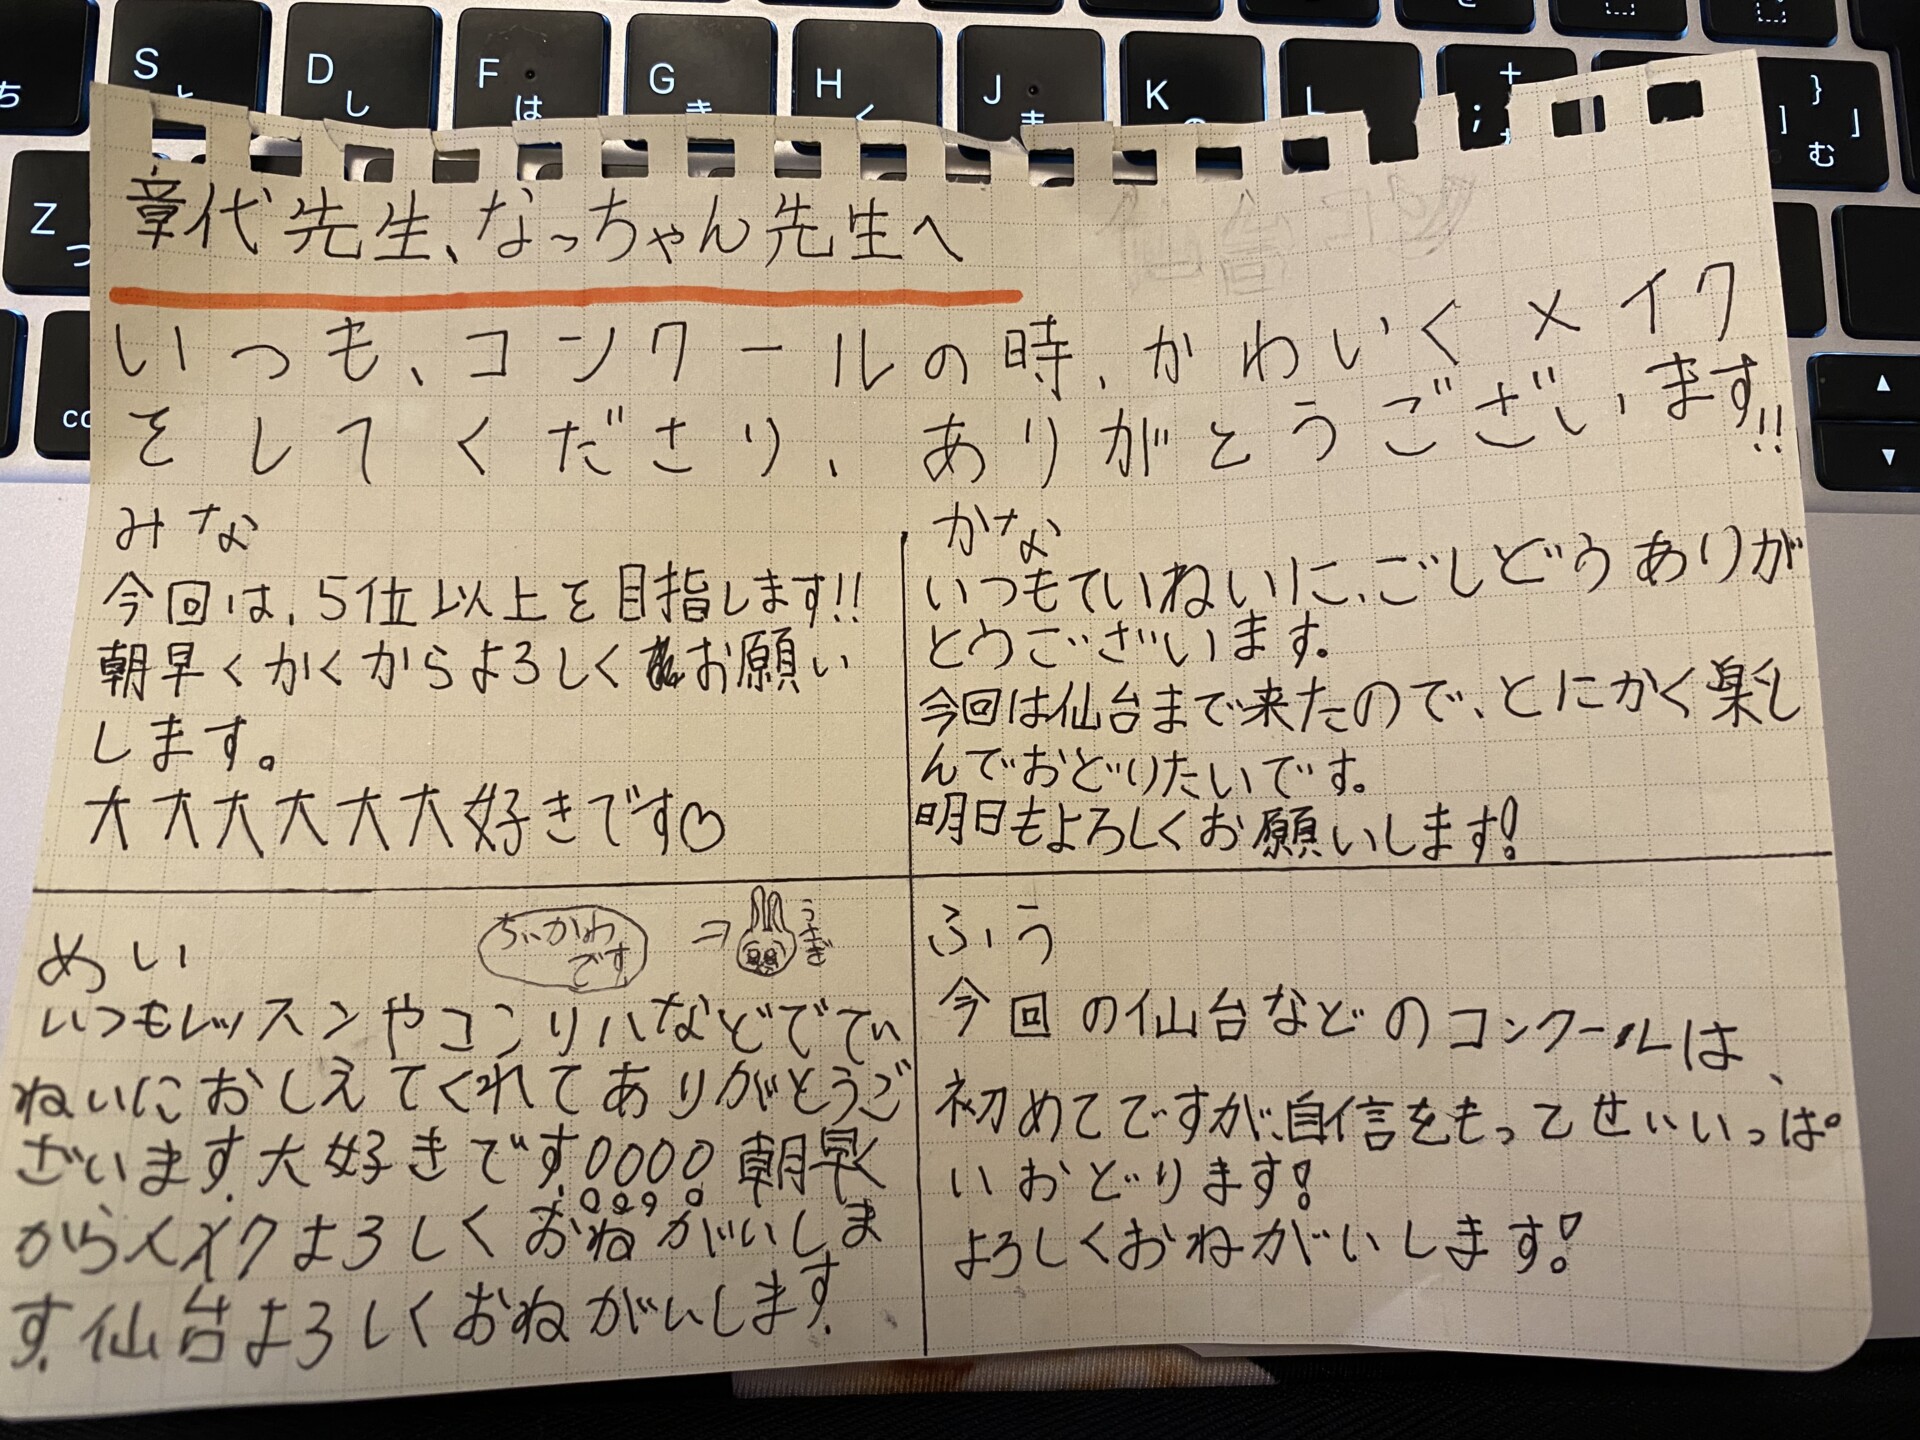 章代先生、なっちゃん先生へ
仙台コン
いつも、コンクールの時、かわいくメイク
をしてくださり、ありがとうございます!!
みな
今回は、5位以上を目指します!!
朝早くかくからよろしくお願い
します。
大大大大大大好きです♡
かな
いつもていねいに、ごしどうありが
とうございます。
今回は仙台まで来たので、とにかく楽し
んでおどりたいです。
明日もよろしくお願いします!
めい
ちいかわ
です
→
うさぎ
いつもレッスンやコンリハなどでてい
ねいにおしえてくれてありがとうご
ざいます。大好きです!!!! 朝早く
からメイクよろしくおねがいしま
す。仙台よろしくおねがいします。
ふう
今回の仙台などのコンクールは、
初めてですが、自信をもってせいいっぱ
いおどります!
よろしくおねがいします!
S と
D し
F は
G き
H く
J ま
K の
L
+ ;
} ] 」 む
Z つ
ち
▲
▼